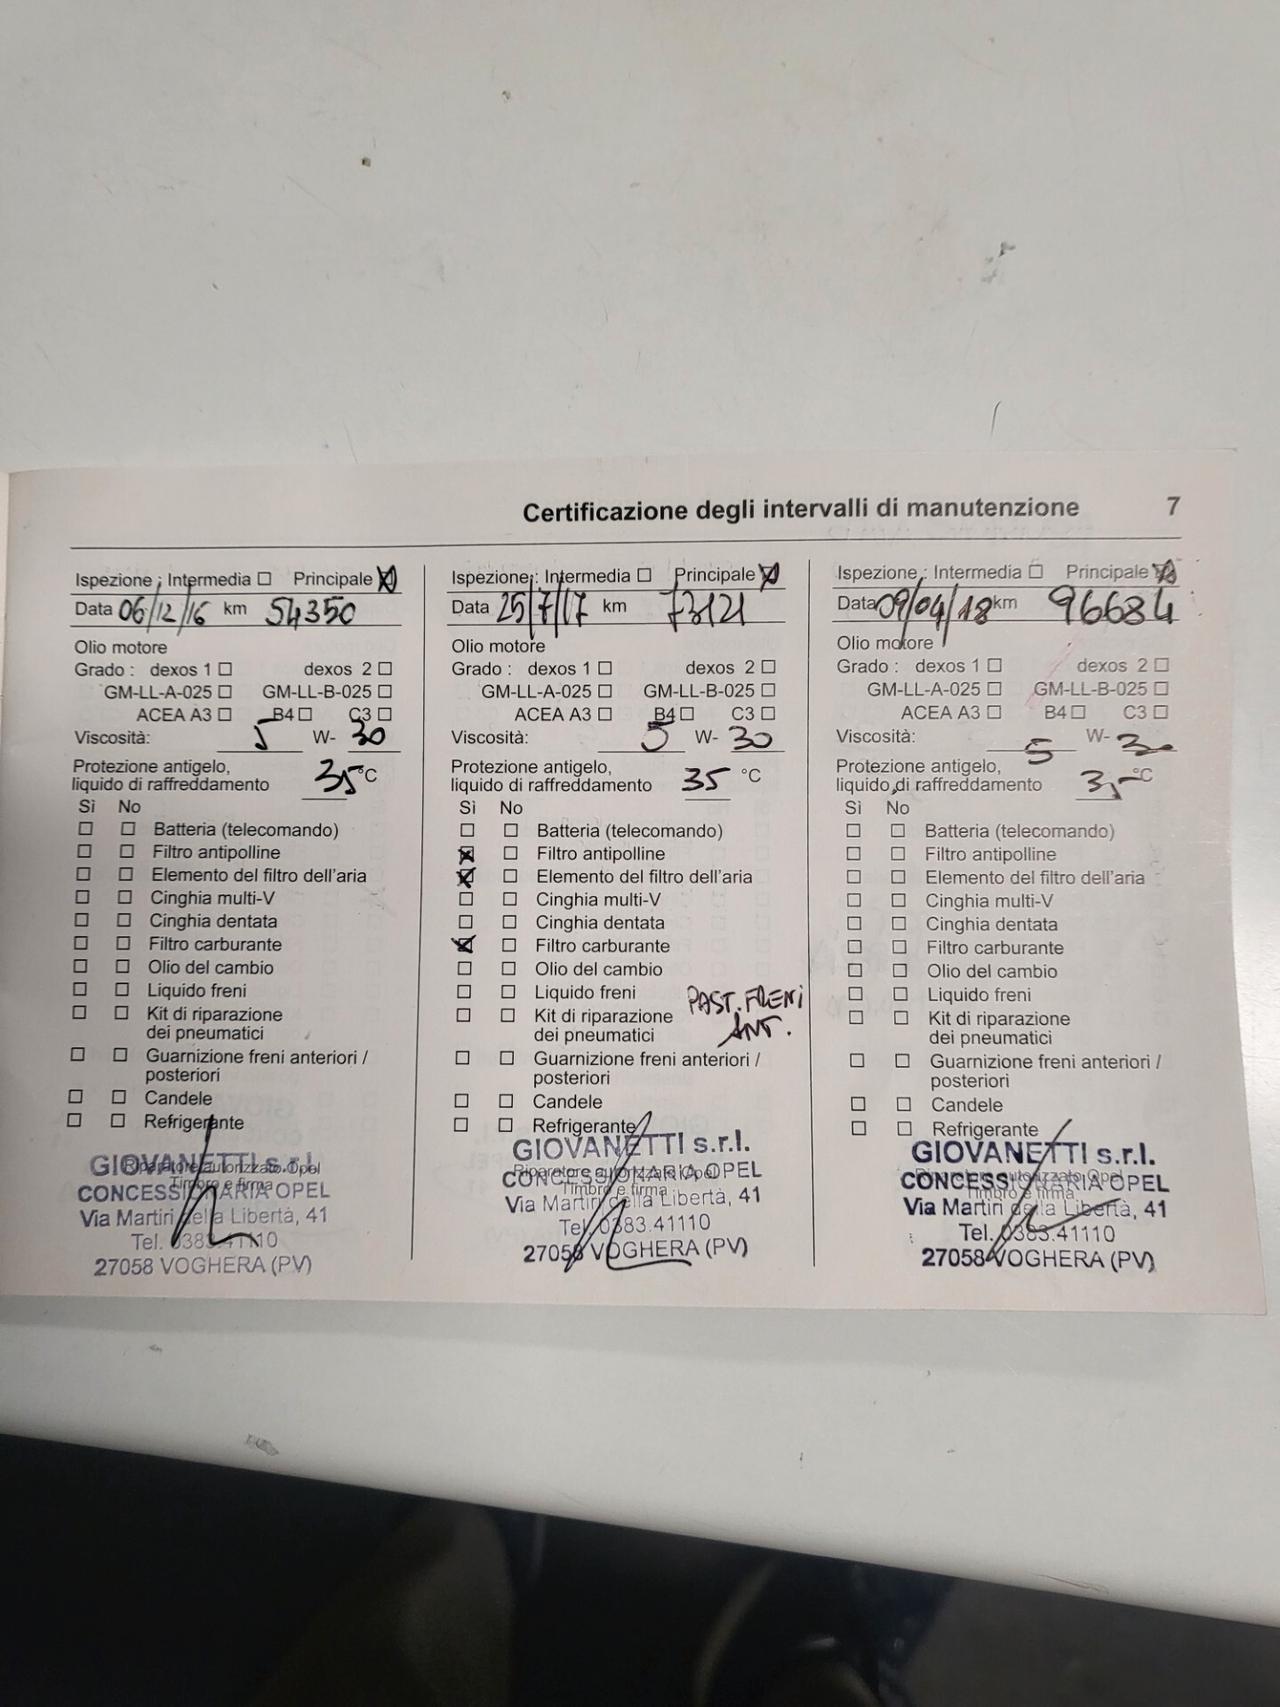 Certificazione degli intervalli di manutenzione 7
Ispezione : Intermedia ☐ Principale ☒
Data 06/12/16 km 54350
Olio motore
Grado : dexos 1 ☐ dexos 2 ☐
GM-LL-A-025 ☐ GM-LL-B-025 ☐
ACEA A3 ☐ B4 ☐ C3 ☐
Viscosità: 5 W- 30
Protezione antigelo,
liquido di raffreddamento 35 °C
Sì No
☐ ☐ Batteria (telecomando)
☐ ☐ Filtro antipolline
☐ ☐ Elemento del filtro dell'aria
☐ ☐ Cinghia multi-V
☐ ☐ Cinghia dentata
☐ ☐ Filtro carburante
☐ ☐ Olio del cambio
☐ ☐ Liquido freni
☐ ☐ Kit di riparazione
dei pneumatici
☐ ☐ Guarnizione freni anteriori /
posteriori
☐ ☐ Candele
☐ ☐ Refrigerante
Riparatore autorizzato Opel
Timbro e firma
GIOVANETTI s.r.l.
CONCESSIONARIA OPEL
Via Martiri della Libertà, 41
Tel. 0383.41110
27058 VOGHERA (PV)
Ispezione : Intermedia ☐ Principale ☒
Data 25/7/17 km 73121
Olio motore
Grado : dexos 1 ☐ dexos 2 ☐
GM-LL-A-025 ☐ GM-LL-B-025 ☐
ACEA A3 ☐ B4 ☐ C3 ☐
Viscosità: 5 W- 30
Protezione antigelo,
liquido di raffreddamento 35 °C
Sì No
☐ ☐ Batteria (telecomando)
☒ ☐ Filtro antipolline
☒ ☐ Elemento del filtro dell'aria
☐ ☐ Cinghia multi-V
☐ ☐ Cinghia dentata
☒ ☐ Filtro carburante
☐ ☐ Olio del cambio
☐ ☐ Liquido freni PAST. FRENI
☐ ☐ Kit di riparazione ANT.
dei pneumatici
☐ ☐ Guarnizione freni anteriori /
posteriori
☐ ☐ Candele
☐ ☐ Refrigerante
Riparatore autorizzato Opel
Timbro e firma
GIOVANETTI s.r.l.
CONCESSIONARIA OPEL
Via Martiri della Libertà, 41
Tel. 0383.41110
27058 VOGHERA (PV)
Ispezione : Intermedia ☐ Principale ☒
Data 09/04/18 km 96684
Olio motore
Grado : dexos 1 ☐ dexos 2 ☐
GM-LL-A-025 ☐ GM-LL-B-025 ☐
ACEA A3 ☐ B4 ☐ C3 ☐
Viscosità: 5 W- 30
Protezione antigelo,
liquido di raffreddamento 35 °C
Sì No
☐ ☐ Batteria (telecomando)
☐ ☐ Filtro antipolline
☐ ☐ Elemento del filtro dell'aria
☐ ☐ Cinghia multi-V
☐ ☐ Cinghia dentata
☐ ☐ Filtro carburante
☐ ☐ Olio del cambio
☐ ☐ Liquido freni
☐ ☐ Kit di riparazione
dei pneumatici
☐ ☐ Guarnizione freni anteriori /
posteriori
☐ ☐ Candele
☐ ☐ Refrigerante
Riparatore autorizzato Opel
Timbro e firma
GIOVANETTI s.r.l.
CONCESSIONARIA OPEL
Via Martiri della Libertà, 41
Tel. 0383.41110
27058 VOGHERA (PV)